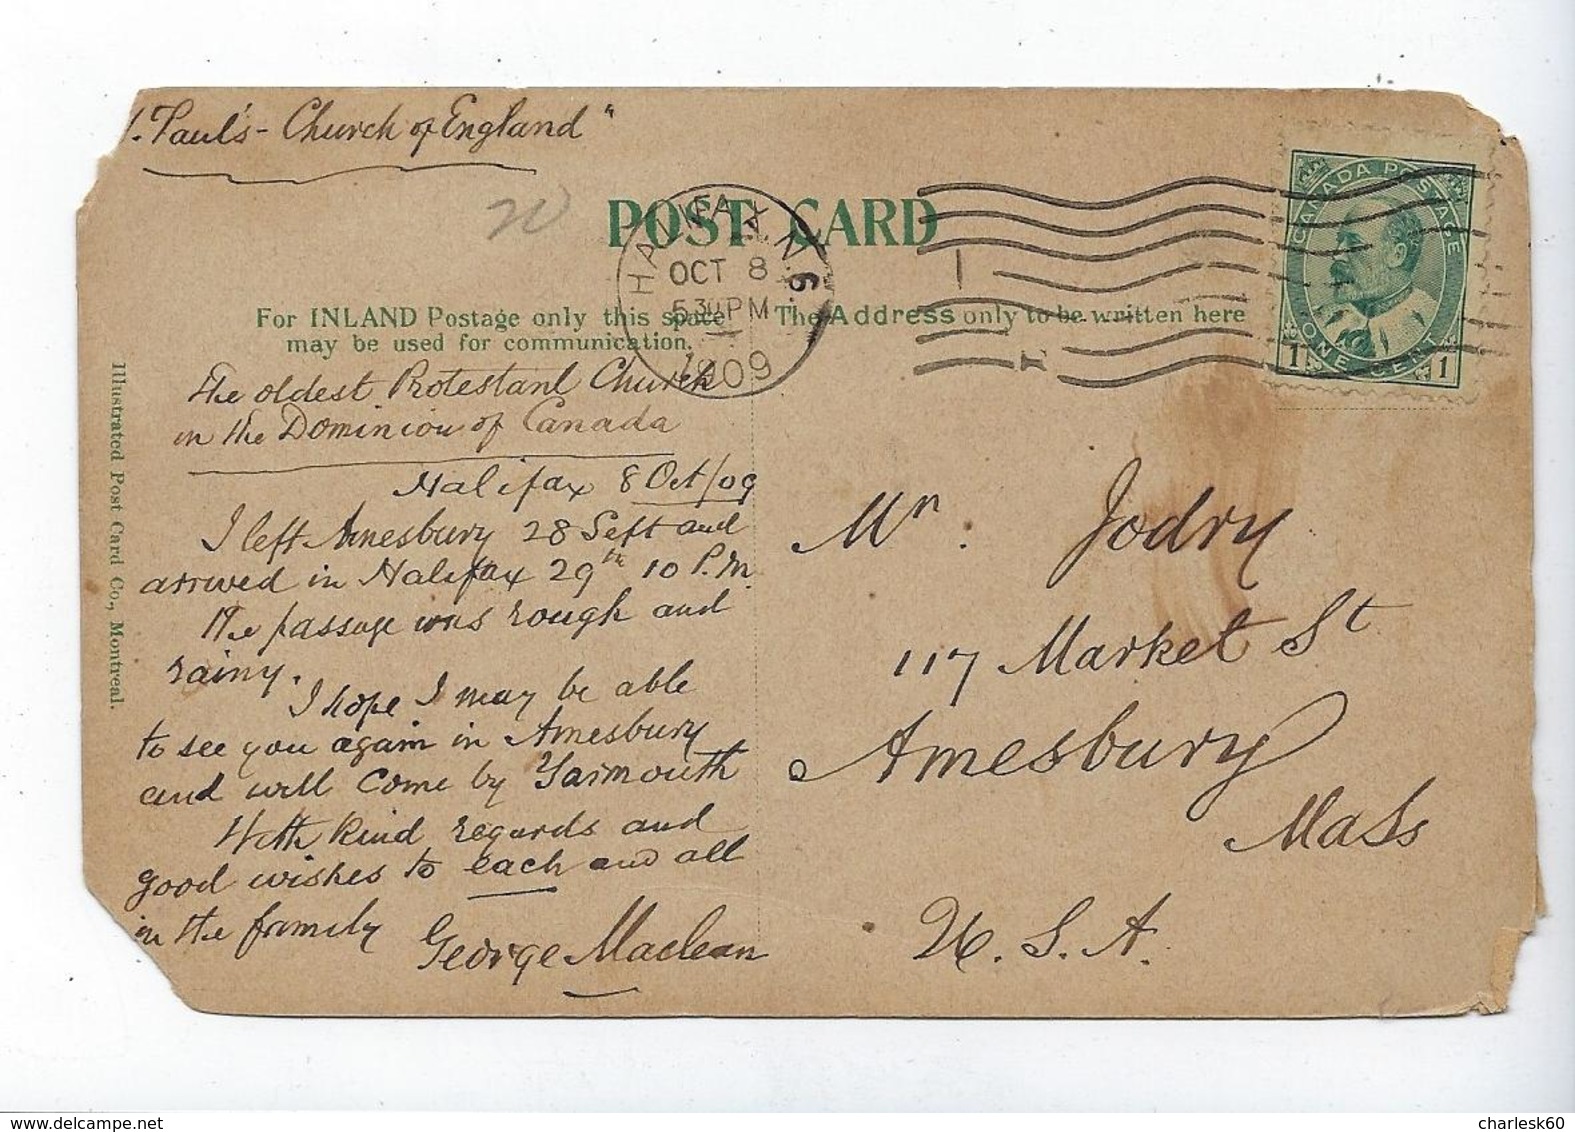 t. Paul's - Church of England"
POST CARD
HALIFAX N.S.
OCT 8
530 PM
1909
CANADA POSTAGE
1 ONE CENT 1
For INLAND Postage only this space
may be used for communication.
The Address only to be written here
The oldest Protestant Church
in the Dominion of Canada
Halifax 8 Oct/09
I left Amesbury 28 Sept and
arrived in Halifax 29th 10 P.M.
The passage was rough and
rainy.
I hope I may be able
to see you again in Amesbury
and will come by Yarmouth
With kind regards and
good wishes to each and all
in the family
George Maclean
Mr. Jodry
117 Market St
Amesbury
Mass
U.S.A.
Illustrated Post Card Co., Montreal.
charlesk60